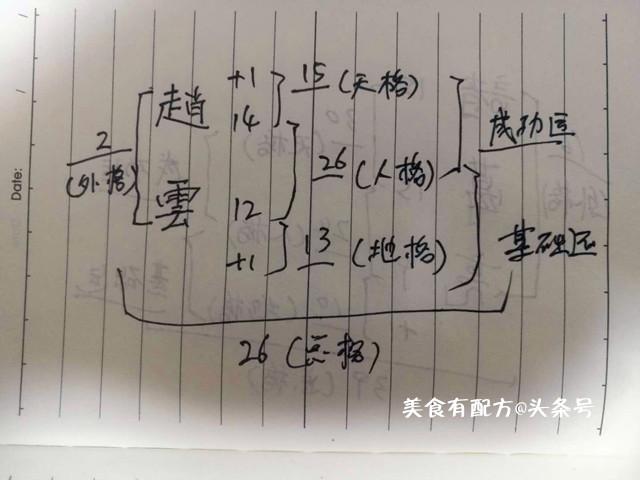 Date:
+1 15 (天格)
趙 14 成功区
2 26 (人格)
(外格)
雲 12
+1 13 (地格) 基础区
26 (总格)
美食有配方@头条号